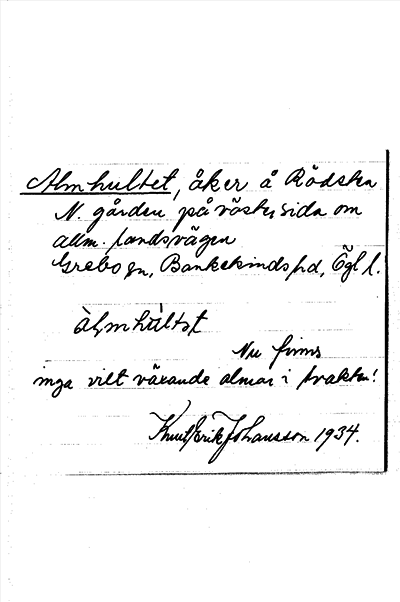 Almhultet, åker å Rödsten
N. gården på västu sida om
allm. landsvägen
Grebo sn, Bankekinds hd, Ögl l.
àlmhúltət
Nu finns
inga vilt växande almar i trakten!
Knut Erik Johansson 1934.